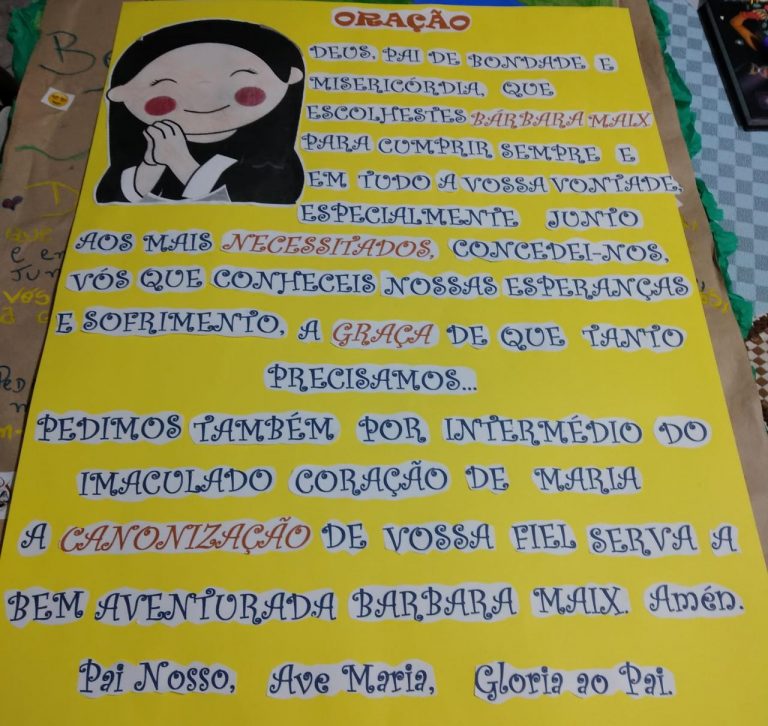 ORAÇÃO
DEUS, PAI DE BONDADE E
MISERICÓRDIA, QUE
ESCOLHESTES BÁRBARA MAIX
PARA CUMPRIR SEMPRE E
EM TUDO A VOSSA VONTADE,
ESPECIALMENTE JUNTO
AOS MAIS NECESSITADOS, CONCEDEI-NOS,
VÓS QUE CONHECEIS NOSSAS ESPERANÇAS
E SOFRIMENTO, A GRAÇA DE QUE TANTO
PRECISAMOS...
PEDIMOS TAMBÉM POR INTERMÉDIO DO
IMACULADO CORAÇÃO DE MARIA
A CANONIZAÇÃO DE VOSSA FIEL SERVA A
BEM AVENTURADA BARBARA MAIX. Amén.
Pai Nosso, Ave Maria, Gloria ao Pai.